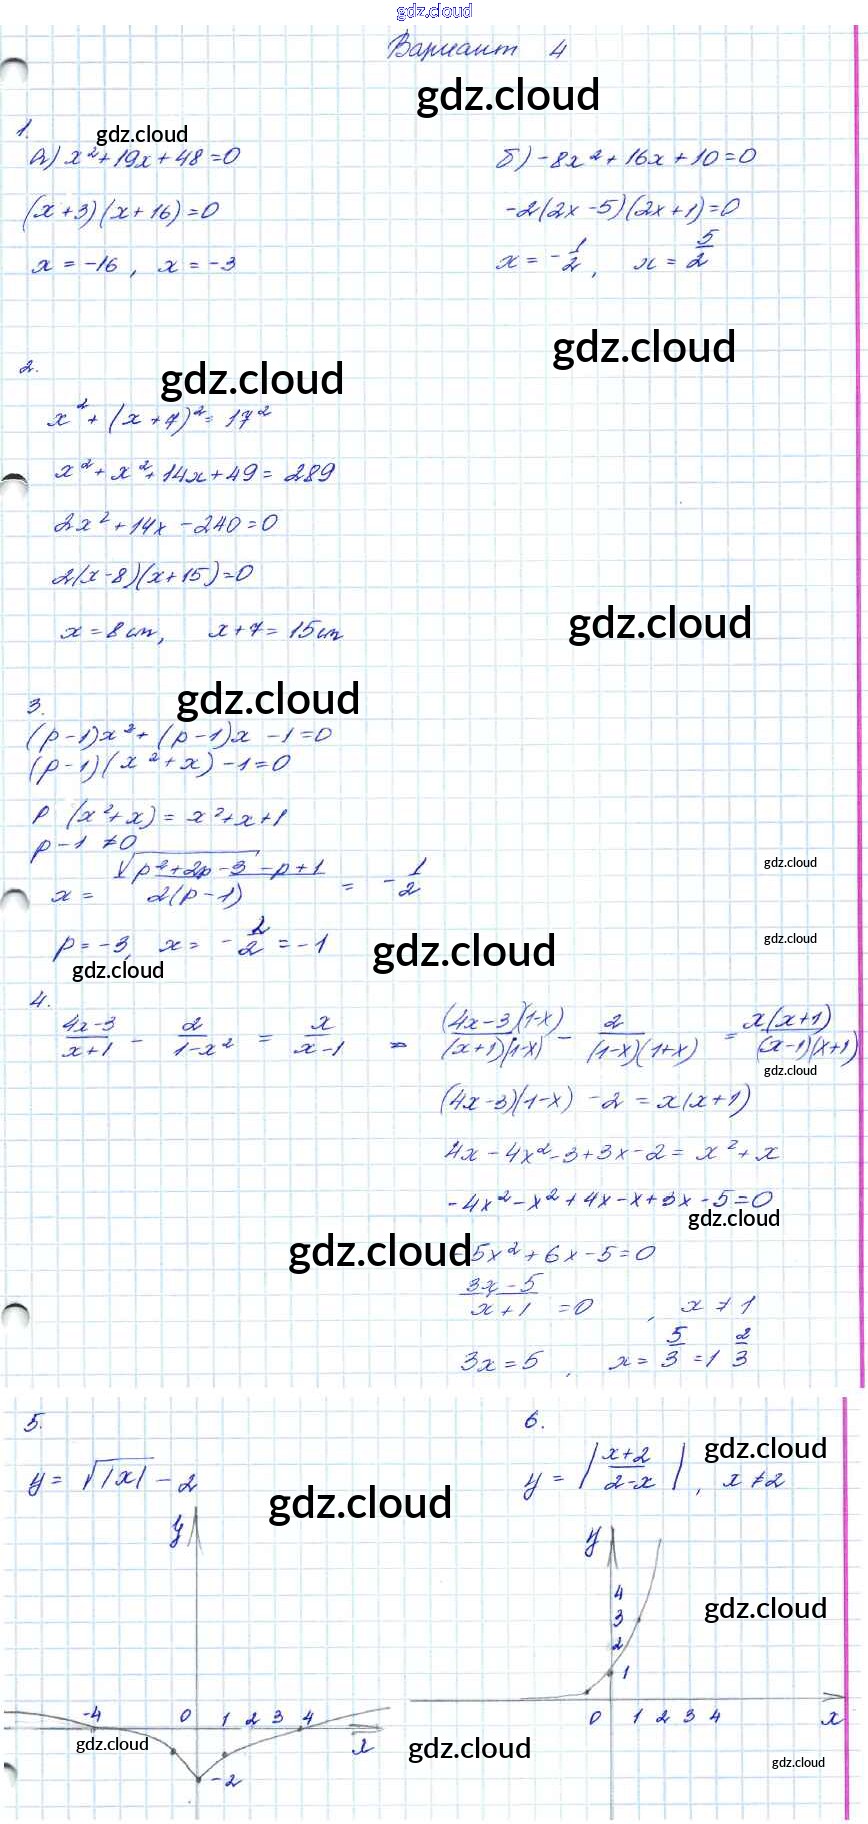 gdz.cloud
Вариант 4
gdz.cloud
1.
gdz.cloud
а) x²+19x+48=0
(x+3)(x+16)=0
x=-16, x=-3
б) -8x²+16x+10=0
-2(2x-5)(2x+1)=0
x=-1/2, x=5/2
gdz.cloud
2.
gdz.cloud
x²+(x+7)²=17²
x²+x²+14x+49=289
2x²+14x-240=0
2(x-8)(x+15)=0
x=8см, x+7=15см
gdz.cloud
gdz.cloud
3.
(p-1)x²+(p-1)x-1=0
(p-1)(x²+x)-1=0
p(x²+x)=x²+x+1
p-1≠0
gdz.cloud
x= (√(p²+2p-3)-p+1)/(2(p-1)) = -1/2
gdz.cloud
p=-3, x=-2/2=-1
gdz.cloud
gdz.cloud
4.
(4x-3)/(x+1) - 2/(1-x²) = x/(x-1) = ((4x-3)(1-x))/((x+1)(1-x)) - 2/((1-x)(1+x)) = (x(x+1))/((x-1)(x+1))
gdz.cloud
(4x-3)(1-x)-2=x(x+1)
4x-4x²-3+3x-2=x²+x
-4x²-x²+4x-x+3x-5=0
gdz.cloud
gdz.cloud
-5x²+6x-5=0
(3x-5)/(x+1) =0, x≠1
3x=5, x=5/3=1 2/3
5.
y=√|x| -2
gdz.cloud
y
-4 0 1 2 3 4
x
-2
gdz.cloud
6.
gdz.cloud
y=|(x+2)/(2-x)|, x≠2
y
4
3
2
1
gdz.cloud
0 1 2 3 4 x
gdz.cloud
gdz.cloud